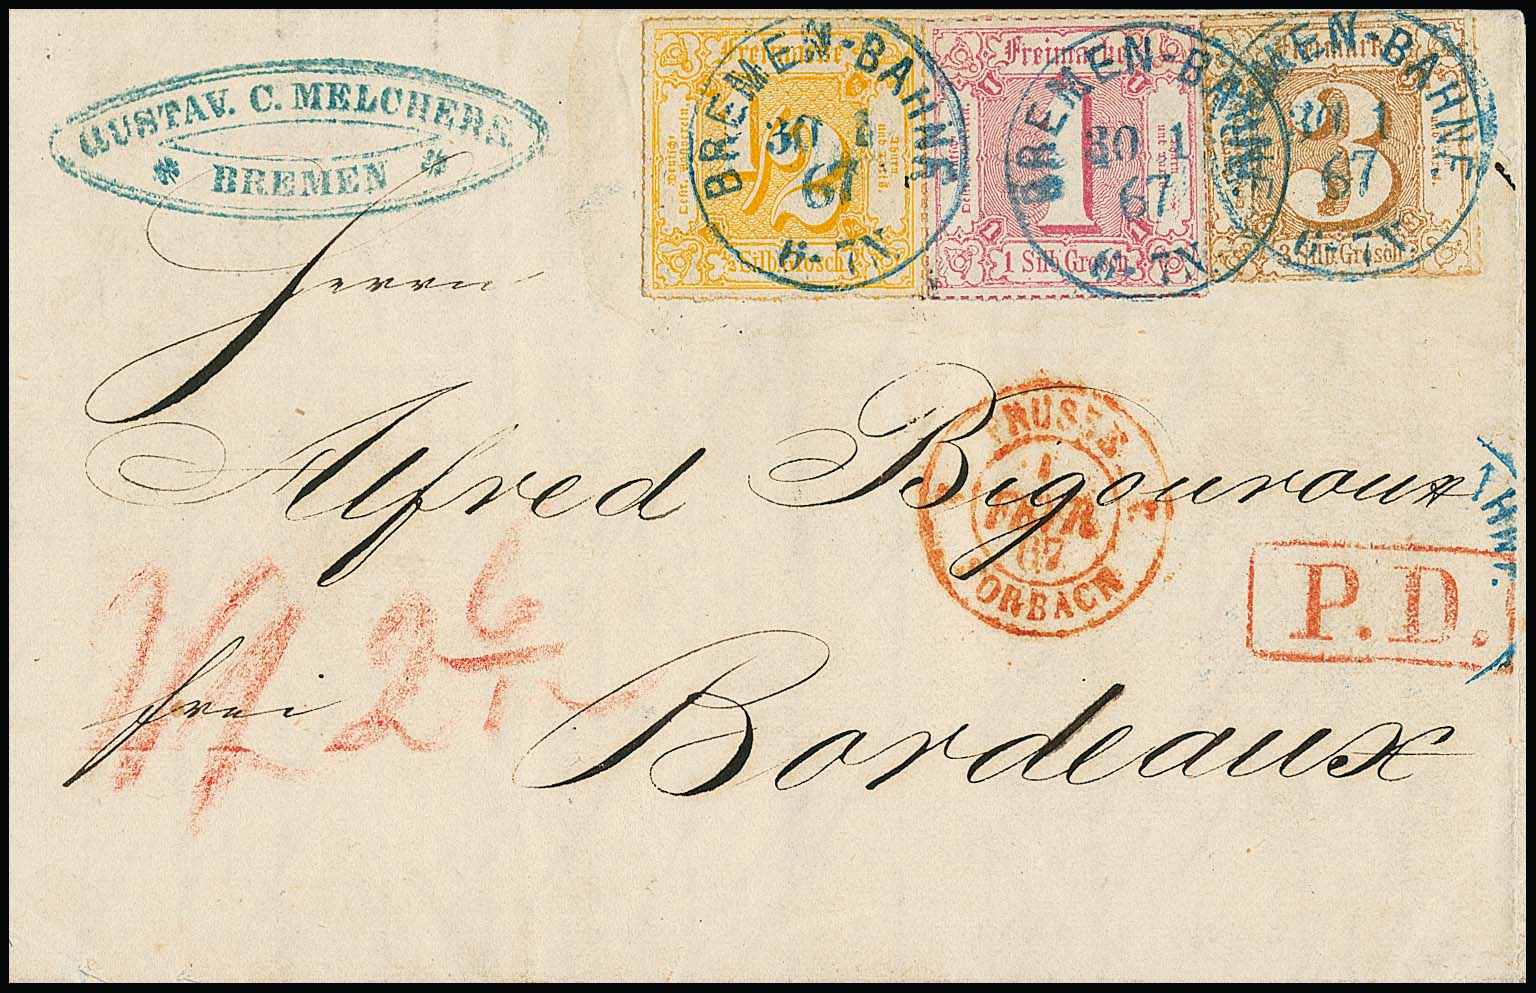 GUSTAV. C. MELCHERS.
BREMEN
Freimarke
1/2
1/2 Silb. Grosch.
Freimarke
1
1 Silb. Grosch.
Freimarke
3
3 Silb. Grosch.
BREMEN-BAHNHF.
30 1
67
6-7N.
BREMEN-BAHNHF.
30 1
67
6-7N.
BREMEN-BAHNHF.
30 1
67
6-7N.
Herrn
Alfred Bigouroux
PRUSSE
1
FEVR
67
FORBACH
3 3
HNF.
P.D.
frei Bordeaux
2 6/